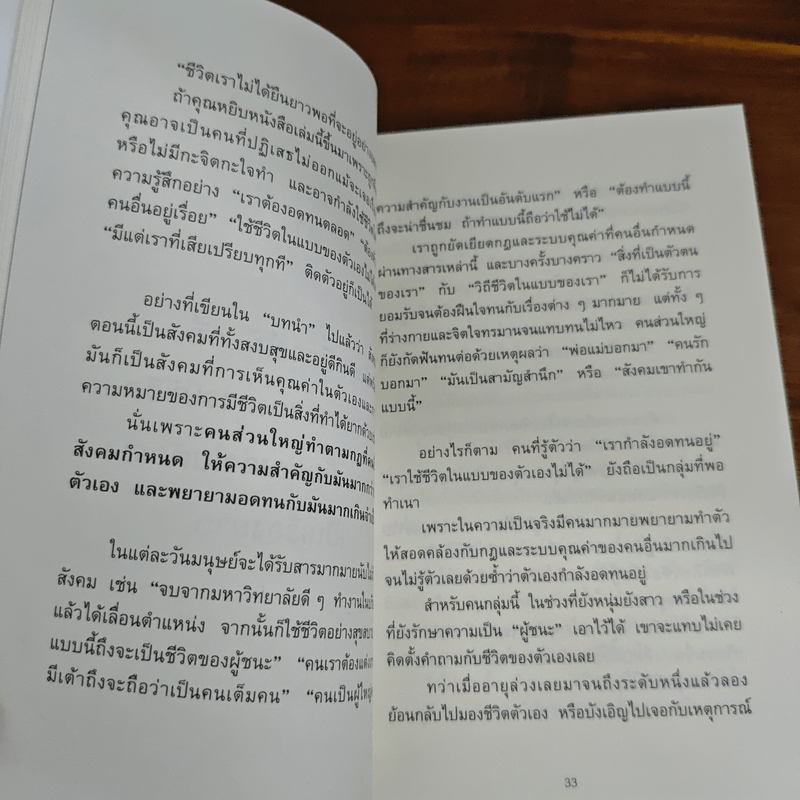 “ชีวิตเราไม่ได้ยืนยาวพอที่จะอยู่อย่าง
ถ้าคุณหยิบหนังสือเล่มนี้ขึ้นมาเพราะ
คุณอาจเป็นคนที่ปฏิเสธไม่ออกแม้จะ
หรือไม่มีกะจิตกะใจทำ และอาจกำลังใช้ชีวิต
ความรู้สึกอย่าง “เราต้องอดทนตลอด”
คนอื่นอยู่เรื่อย” “ใช้ชีวิตในแบบของตัวเองไม่ได้
“มีแต่เราที่เสียเปรียบทุกที” ติดตัวอยู่ก็เป็นได้
อย่างที่เขียนใน “บทนำ” ไปแล้วว่า
ตอนนี้เป็นสังคมที่ทั้งสงบสุขและอยู่ดีกินดี
มันก็เป็นสังคมที่การเห็นคุณค่าในตัวเองและ
ความหมายของการมีชีวิตเป็นสิ่งที่ทำได้ยากด้วย
นั่นเพราะคนส่วนใหญ่ทำตามกฎที่
สังคมกำหนด ให้ความสำคัญกับมันมากกว่า
ตัวเอง และพยายามอดทนกับมันมากเกินจำเป็น
ในแต่ละวันมนุษย์จะได้รับสารมากมายนับไม่
สังคม เช่น “จบจากมหาวิทยาลัยดี ๆ ทำงานใน
แล้วได้เลื่อนตำแหน่ง จากนั้นก็ใช้ชีวิตอย่างสุขสบาย
แบบนี้ถึงจะเป็นชีวิตของผู้ชนะ” “คนเราต้องแต่งงาน
มีเต้าถึงจะถือว่าเป็นคนเต็มคน” “คนเป็นผู้ใหญ่
ความสำคัญกับงานเป็นอันดับแรก” หรือ “ต้องทำแบบนี้
ถึงจะน่าชื่นชม ถ้าทำแบบนี้ถือว่าใช้ไม่ได้”
เราถูกยัดเยียดกฎและระบบคุณค่าที่คนอื่นกำหนด
ผ่านทางสารเหล่านี้ และบางครั้งบางคราว “สิ่งที่เป็นตัวตน
ของเรา” กับ “วิถีชีวิตในแบบของเรา” ก็ไม่ได้รับการ
ยอมรับจนต้องฝืนใจทนกับเรื่องต่าง ๆ มากมาย แต่ทั้ง ๆ
ที่ร่างกายและจิตใจทรมานจนแทบทนไม่ไหว คนส่วนใหญ่
ก็ยังกัดฟันทนต่อด้วยเหตุผลว่า “พ่อแม่บอกมา” “คนรัก
บอกมา” “มันเป็นสามัญสำนึก” หรือ “สังคมเขาทำกัน
แบบนี้”
อย่างไรก็ตาม คนที่รู้ตัวว่า “เรากำลังอดทนอยู่”
“เราใช้ชีวิตในแบบของตัวเองไม่ได้” ยังถือเป็นกลุ่มที่พอ
ทำเนา
เพราะในความเป็นจริงมีคนมากมายพยายามทำตัว
ให้สอดคล้องกับกฎและระบบคุณค่าของคนอื่นมากเกินไป
จนไม่รู้ตัวเลยด้วยซ้ำว่าตัวเองกำลังอดทนอยู่
สำหรับคนกลุ่มนี้ ในช่วงที่ยังหนุ่มยังสาว หรือในช่วง
ที่ยังรักษาความเป็น “ผู้ชนะ” เอาไว้ได้ เขาจะแทบไม่เคย
คิดตั้งคำถามกับชีวิตของตัวเองเลย
ทว่าเมื่ออายุล่วงเลยมาจนถึงระดับหนึ่งแล้วลอง
ย้อนกลับไปมองชีวิตตัวเอง หรือบังเอิญไปเจอกับเหตุการณ์
33